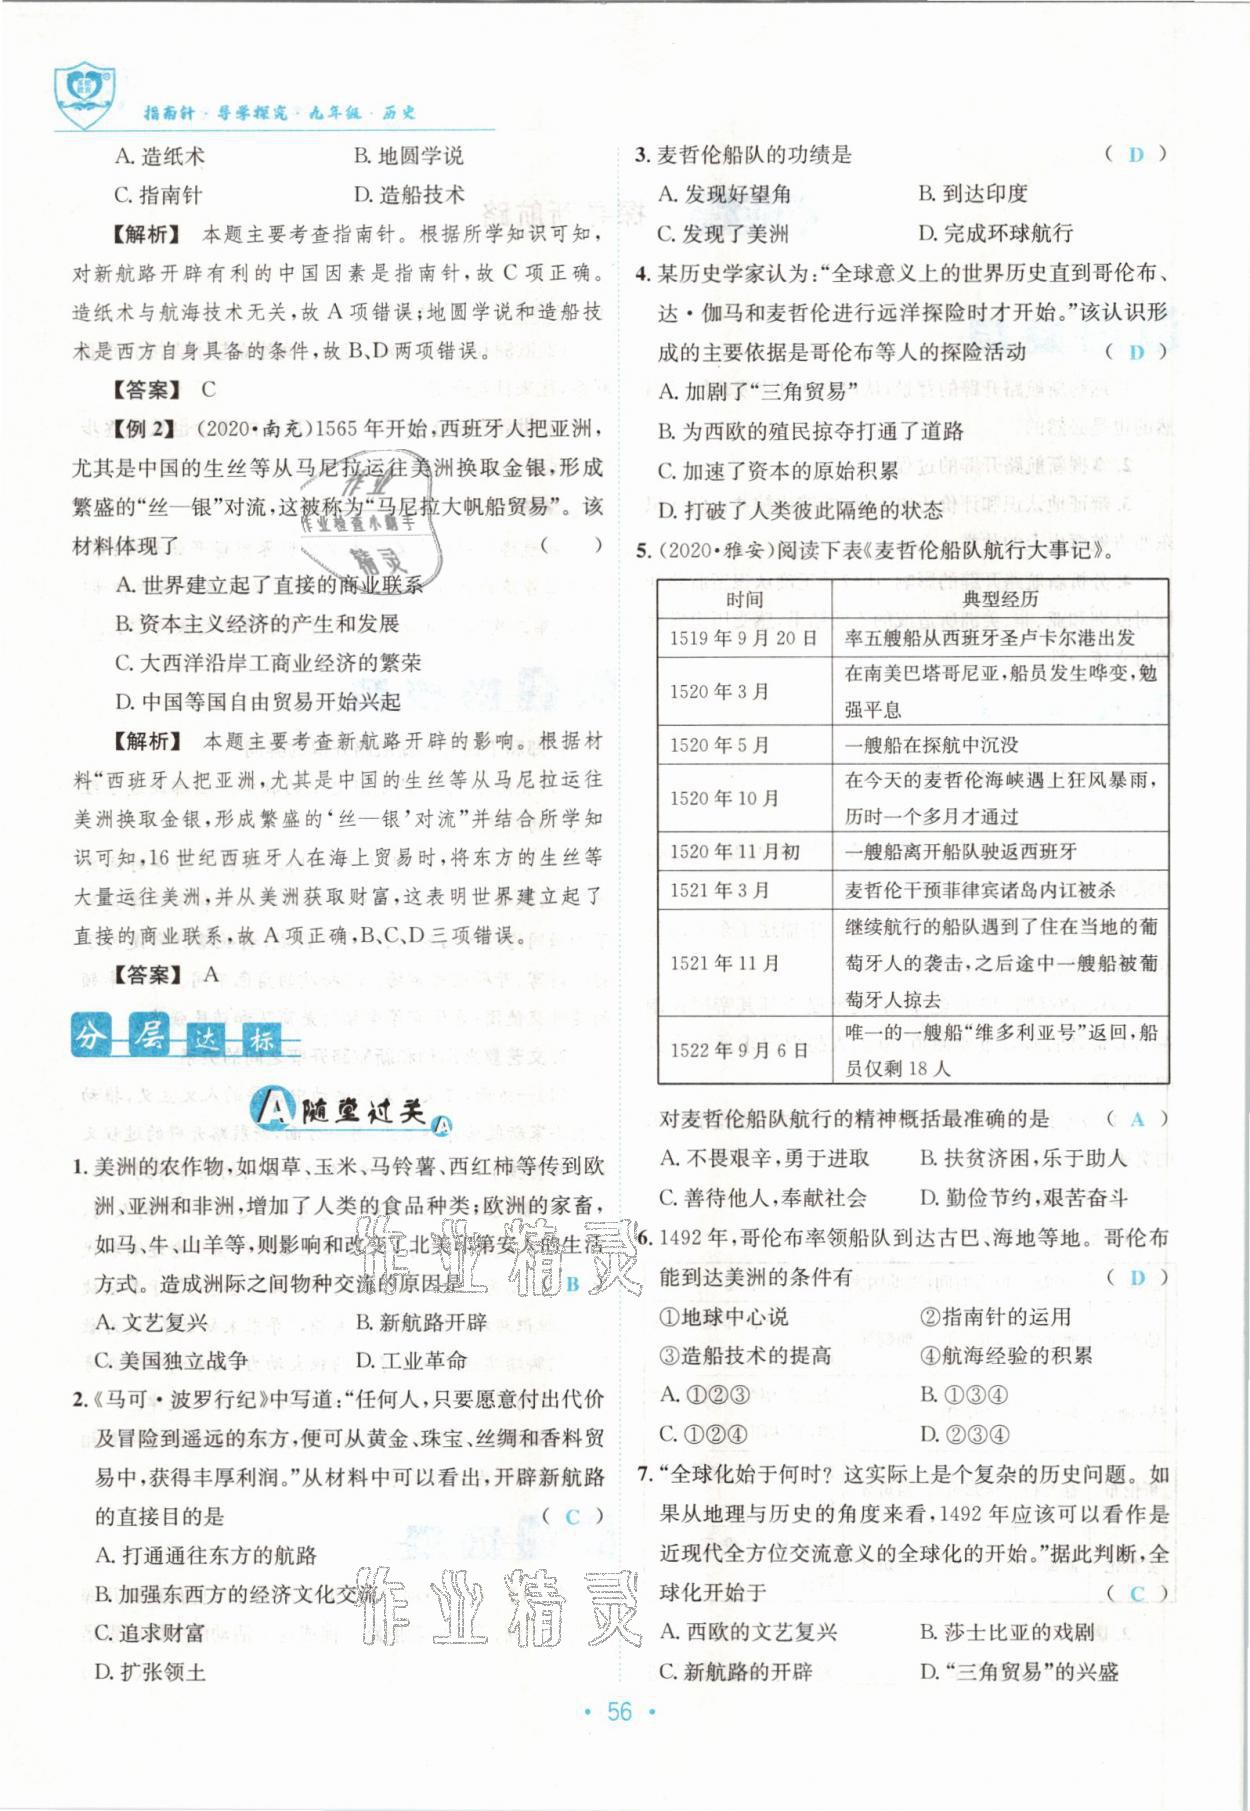 指南针·导学探究·九年级·历史
A. 造纸术 B. 地圆学说
C. 指南针 D. 造船技术
【解析】 本题主要考查指南针。根据所学知识可知,
对新航路开辟有利的中国因素是指南针,故 C 项正确。
造纸术与航海技术无关,故 A 项错误;地圆学说和造船技
术是西方自身具备的条件,故 B、D 两项错误。
【答案】 C
【例 2】 (2020·南充)1565 年开始,西班牙人把亚洲,
尤其是中国的生丝等从马尼拉运往美洲换取金银,形成
繁盛的“丝—银”对流,这被称为“马尼拉大帆船贸易”。该
材料体现了 ( )
A. 世界建立起了直接的商业联系
B. 资本主义经济的产生和发展
C. 大西洋沿岸工商业经济的繁荣
D. 中国等国自由贸易开始兴起
【解析】 本题主要考查新航路开辟的影响。根据材
料“西班牙人把亚洲,尤其是中国的生丝等从马尼拉运往
美洲换取金银,形成繁盛的‘丝—银’对流”并结合所学知
识可知,16 世纪西班牙人在海上贸易时,将东方的生丝等
大量运往美洲,并从美洲获取财富,这表明世界建立起了
直接的商业联系,故 A 项正确,B、C、D 三项错误。
【答案】 A
分层达标
A 随堂过关
1. 美洲的农作物,如烟草、玉米、马铃薯、西红柿等传到欧
洲、亚洲和非洲,增加了人类的食品种类;欧洲的家畜,
如马、牛、山羊等,则影响和改变了北美印第安人的生活
方式。造成洲际之间物种交流的原因是 ( B )
A. 文艺复兴 B. 新航路开辟
C. 美国独立战争 D. 工业革命
2.《马可·波罗行纪》中写道:“任何人,只要愿意付出代价
及冒险到遥远的东方,便可从黄金、珠宝、丝绸和香料贸
易中,获得丰厚利润。”从材料中可以看出,开辟新航路
的直接目的是 ( C )
A. 打通通往东方的航路
B. 加强东西方的经济文化交流
C. 追求财富
D. 扩张领土
3. 麦哲伦船队的功绩是 ( D )
A. 发现好望角 B. 到达印度
C. 发现了美洲 D. 完成环球航行
4. 某历史学家认为:“全球意义上的世界历史直到哥伦布、
达·伽马和麦哲伦进行远洋探险时才开始。”该认识形
成的主要依据是哥伦布等人的探险活动 ( D )
A. 加剧了“三角贸易”
B. 为西欧的殖民掠夺打通了道路
C. 加速了资本的原始积累
D. 打破了人类彼此隔绝的状态
5. (2020·雅安)阅读下表《麦哲伦船队航行大事记》。
时间 典型经历
1519 年 9 月 20 日 率五艘船从西班牙圣卢卡尔港出发
1520 年 3 月 在南美巴塔哥尼亚,船员发生哗变,勉
强平息
1520 年 5 月 一艘船在探航中沉没
1520 年 10 月 在今天的麦哲伦海峡遇上狂风暴雨,
历时一个多月才通过
1520 年 11 月初 一艘船离开船队驶返西班牙
1521 年 3 月 麦哲伦干预菲律宾诸岛内讧被杀
1521 年 11 月 继续航行的船队遇到了住在当地的葡
萄牙人的袭击,之后途中一艘船被葡
萄牙人掠去
1522 年 9 月 6 日 唯一的一艘船“维多利亚号”返回,船
员仅剩 18 人
对麦哲伦船队航行的精神概括最准确的是 ( A )
A. 不畏艰辛,勇于进取 B. 扶贫济困,乐于助人
C. 善待他人,奉献社会 D. 勤俭节约,艰苦奋斗
6. 1492 年,哥伦布率领船队到达古巴、海地等地。哥伦布
能到达美洲的条件有 ( D )
①地球中心说 ②指南针的运用
③造船技术的提高 ④航海经验的积累
A. ①②③ B. ①③④
C. ①②④ D. ②③④
7. “全球化始于何时?这实际上是个复杂的历史问题。如
果从地理与历史的角度来看,1492 年应该可以看作是
近现代全方位交流意义的全球化的开始。”据此判断,全
球化开始于 ( C )
A. 西欧的文艺复兴 B. 莎士比亚的戏剧
C. 新航路的开辟 D. “三角贸易”的兴盛
· 56 ·
作业
作业检查小助手
精灵
作业精灵
作业精灵